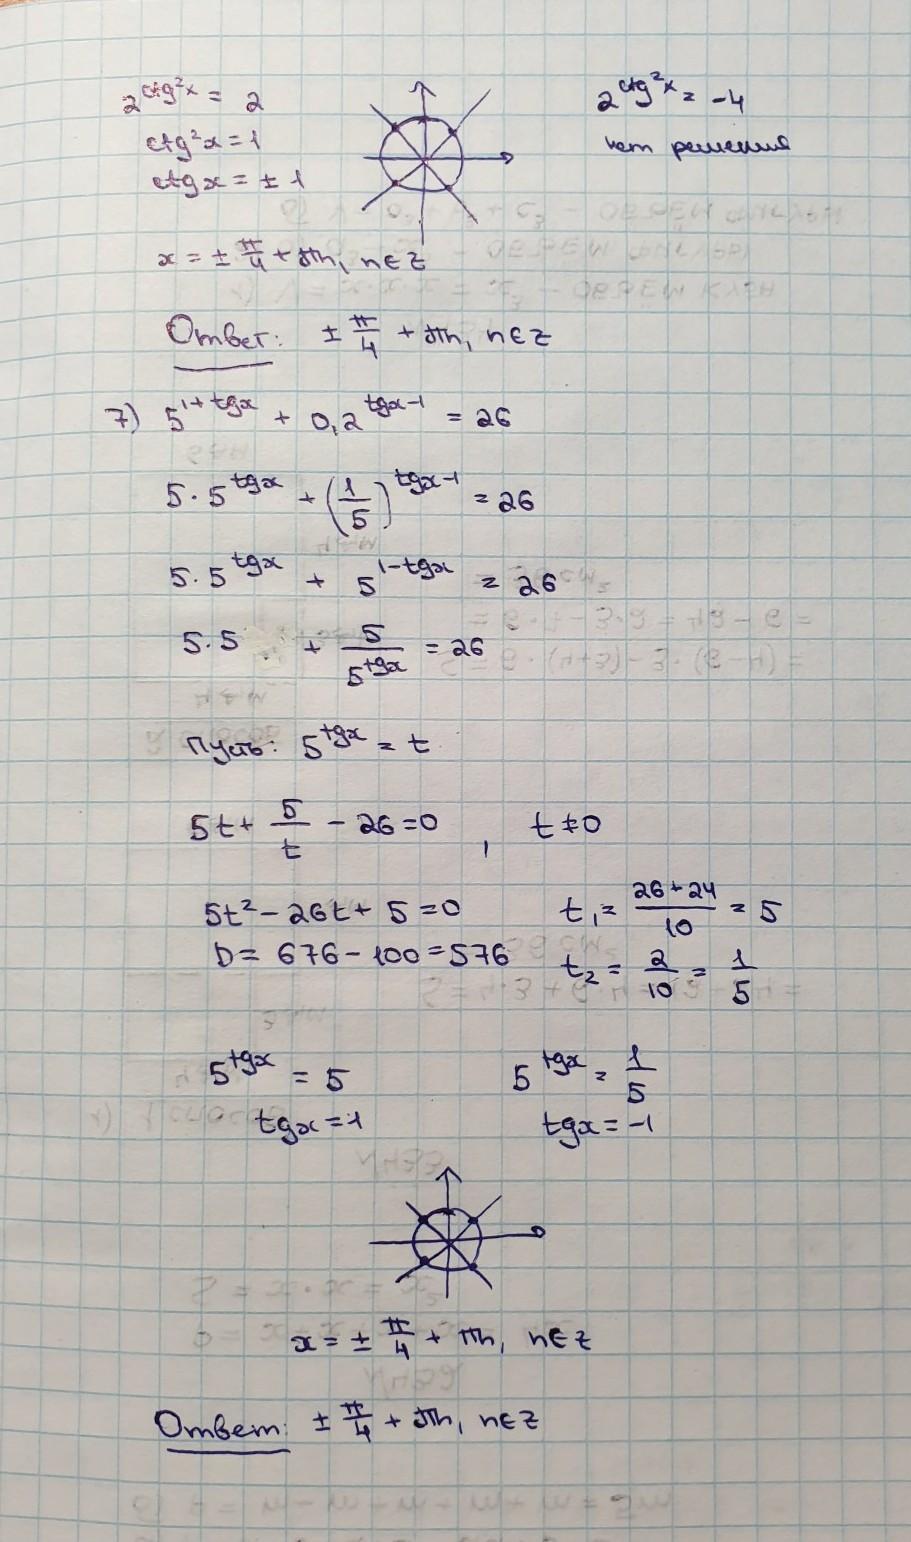 2^{ctg²x} = 2
ctg²x = 1
ctgx = ± 1
2^{ctg²x} = -4
нет решения
x = ± π/4 + πn, n∈Z
Ответ: ± π/4 + πn, n∈Z
7) 5^{1+tgx} + 0,2^{tgx-1} = 26
5·5^{tgx} + (1/5)^{tgx-1} = 26
5·5^{tgx} + 5^{1-tgx} = 26
5·5 + 5/5^{tgx} = 26
Пусть: 5^{tgx} = t
5t + 5/t - 26 = 0 , t ≠ 0
5t² - 26t + 5 = 0
D = 676 - 100 = 576
t₁ = (26+24)/10 = 5
t₂ = 2/10 = 1/5
5^{tgx} = 5
tgx = 1
5^{tgx} = 1/5
tgx = -1
x = ± π/4 + πn, n∈Z
Ответ: ± π/4 + πn, n∈Z